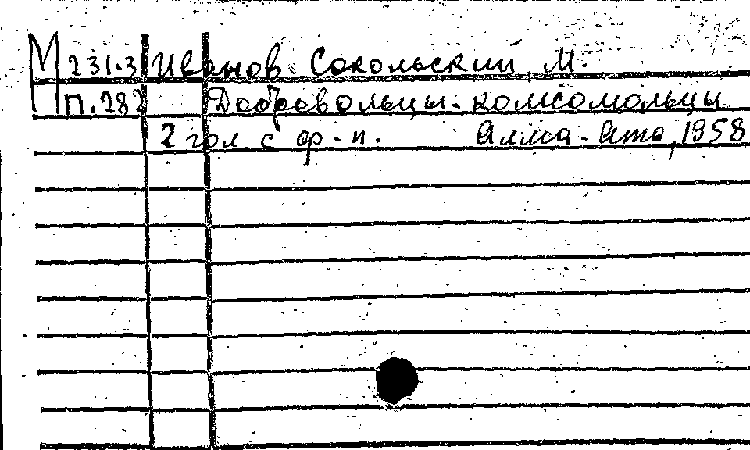 М 231.3 Иванов Сокольский М.
П.282 Добровольцы-комсомольцы
2 гол с ф-п. Алма-Ата, 1958